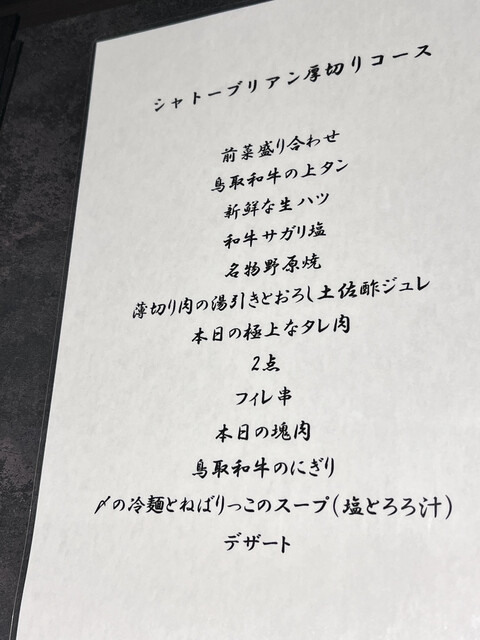 シャトーブリアン厚切りコース
前菜盛り合わせ
鳥取和牛の上タン
新鮮な生ハツ
和牛サガリ塩
名物野原焼
薄切り肉の湯引きとおろし土佐酢ジュレ
本日の極上なタレ肉
2点
フィレ串
本日の塊肉
鳥取和牛のにぎり
〆の冷麺とねばりっこのスープ(塩とろろ汁)
デザート